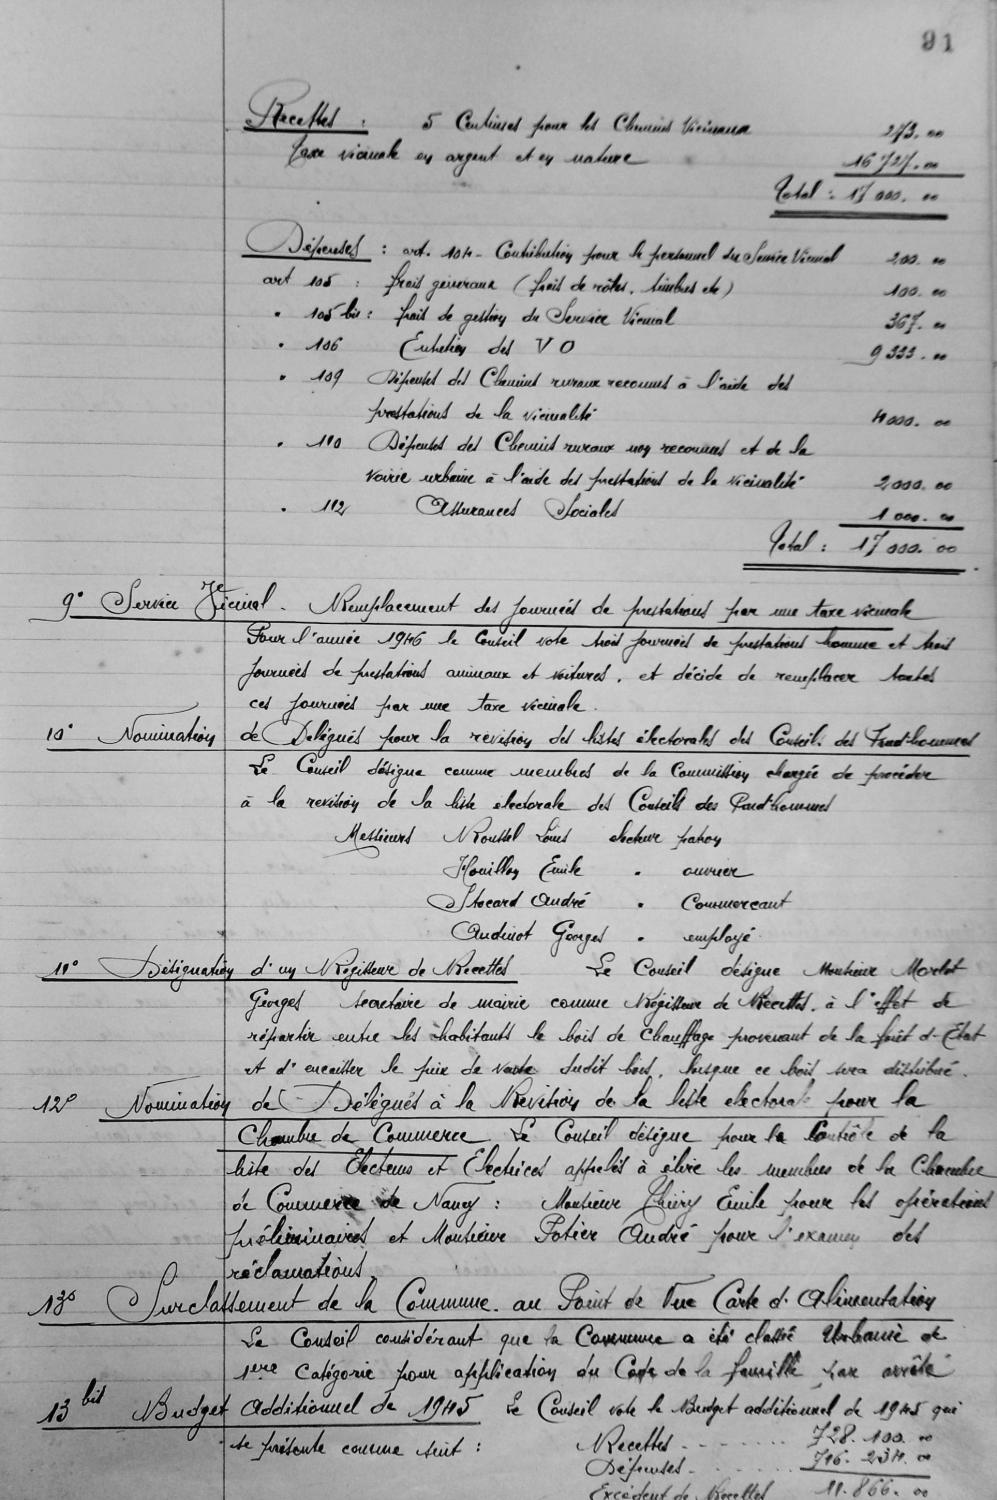 91
Recettes : 5 Centimes pour les Chemins Vicinaux 273.00
Taxe vicinale en argent et en nature 16 727.00
Total : 17 000.00
Dépenses : art. 104 - Contribution pour le personnel du Service Vicinal 200.00
art 105 : frais généraux (frais de rôles, timbres etc) 100.00
" 105 bis : frais de gestion du Service Vicinal 367.00
" 106 Entretien des V O 9 333.00
" 109 Dépenses des Chemins ruraux reconnus à l'aide des
prestations de la vicinalité 4000.00
" 110 Dépenses des Chemins ruraux non reconnus et de la
voirie urbaine à l'aide des prestations de la vicinalité 2000.00
" 112 Assurances Sociales 1 000.00
Total : 17 000.00
9° Service Vicinal. Remplacement des journées de prestations par une taxe vicinale
Pour l'année 1946 le Conseil vote trois journées de prestations homme et trois
journées de prestations animaux et voitures, et décide de remplacer toutes
ces journées par une taxe vicinale.
10° Nomination de Délégués pour la révision des listes électorales des Conseils des Prud'hommes
Le Conseil désigne comme membres de la Commission chargée de procéder
à la revision de la liste electorale des Conseils des Prud'hommes
Messieurs Roussel Louis electeur patron
Houillon Emile " ouvrier
Stocard André " Commercant
Audinot Georges " employé
11° Désignation d'un Régisseur de Recettes Le Conseil désigne Monsieur Morlot
Georges secretaire de mairie comme Régisseur de Recettes, à l'effet de
répartir entre les habitants le bois de chauffage provenant de la forêt d'Etat
et d'encaisser le prix de vente dudit bois, lorsque ce bois sera distribué.
12° Nomination de Délégués à la Revision de la liste electorale pour la
Chambre de Commerce Le Conseil désigne pour le Contrôle de la
liste des Electeurs et Electrices appelés à élire les membres de la Chambre
de Commerce de Nancy : Monsieur Thiéry Emile pour les opérations
préliminaires et Monsieur Potier André pour l'examen des
réclamations.
13° Surclassement de la Commune au Point de Vue Carte d'Alimentation
Le Conseil considérant que la Commune a été classée Urbaine de
1ere Catégorie pour application du Code de la famille par arrêté
13 bis Budget Additionnel de 1945 Le Conseil vote le Budget additionnel de 1945 qui
se présente comme suit : Recettes - - - - - - 728.100.00
Dépenses - - - - - - 716.234.00
Excédent de Recettes 11.866.00